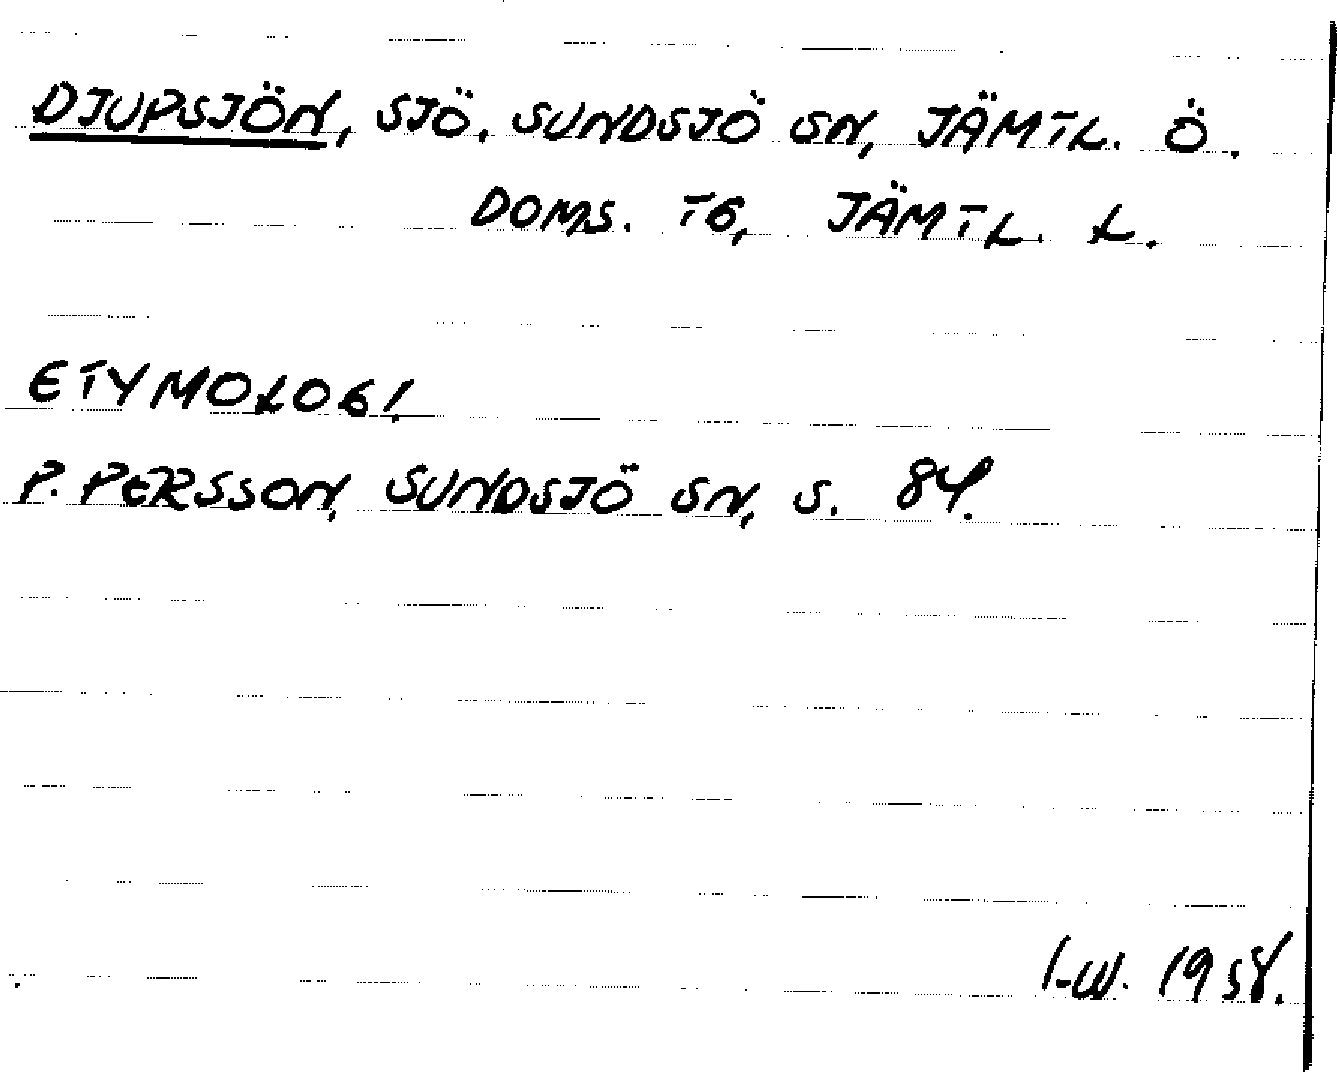 DJUPSJÖN, SJÖ. SUNDSJÖ SN, JÄMTL. Ö.
DOMS. TG, JÄMTL. L.
ETYMOLOGI.
P. PERSSON, SUNDSJÖ SN, S. 84.
I-W. 1958.